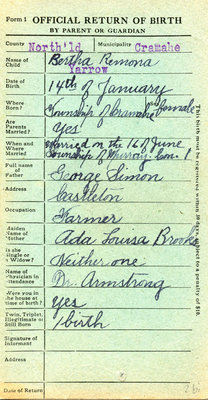 Form 1 OFFICIAL RETURN OF BIRTH
BY PARENT OR GUARDIAN
County North'ld Municipality Cramahe
Name of Child Bertha Remona
Yarrow
Date of Birth 14th of January
Where Born? Township of Cramahe Female
Are Parents Married? Yes
When and Where Married on the 16 of June
Township of Murray Con. 1
Full name of Father George Simon
Address Castleton
Occupation Farmer
Maiden Name of Mother Ada Louisa Brooks
Is she Single or a Widow? Neither one
Name of Physician in Attendance Dr. Armstrong
Were you in the house at time of birth? yes
Twin, Triplet, Illegitimate or Still Born 1 birth
Signature of Informant
Address
Date of Return
This birth must be registered within 30 days, subject to a penalty of $10.